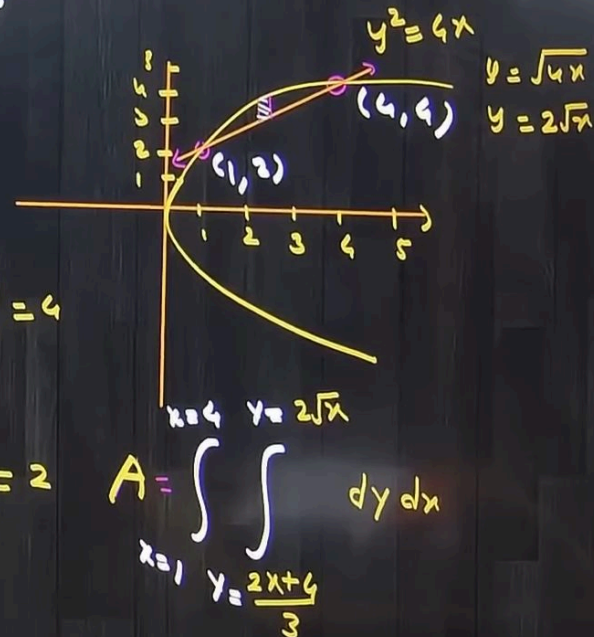 y² = 4x
y = √4x
y = 2√x
(4, 4)
(1, 2)
5
4
3
2
1
1 2 3 4 5
= 4
= 2
A = ∫_{x=1}^{x=4} ∫_{y=(2x+4)/3}^{y=2√x} dy dx